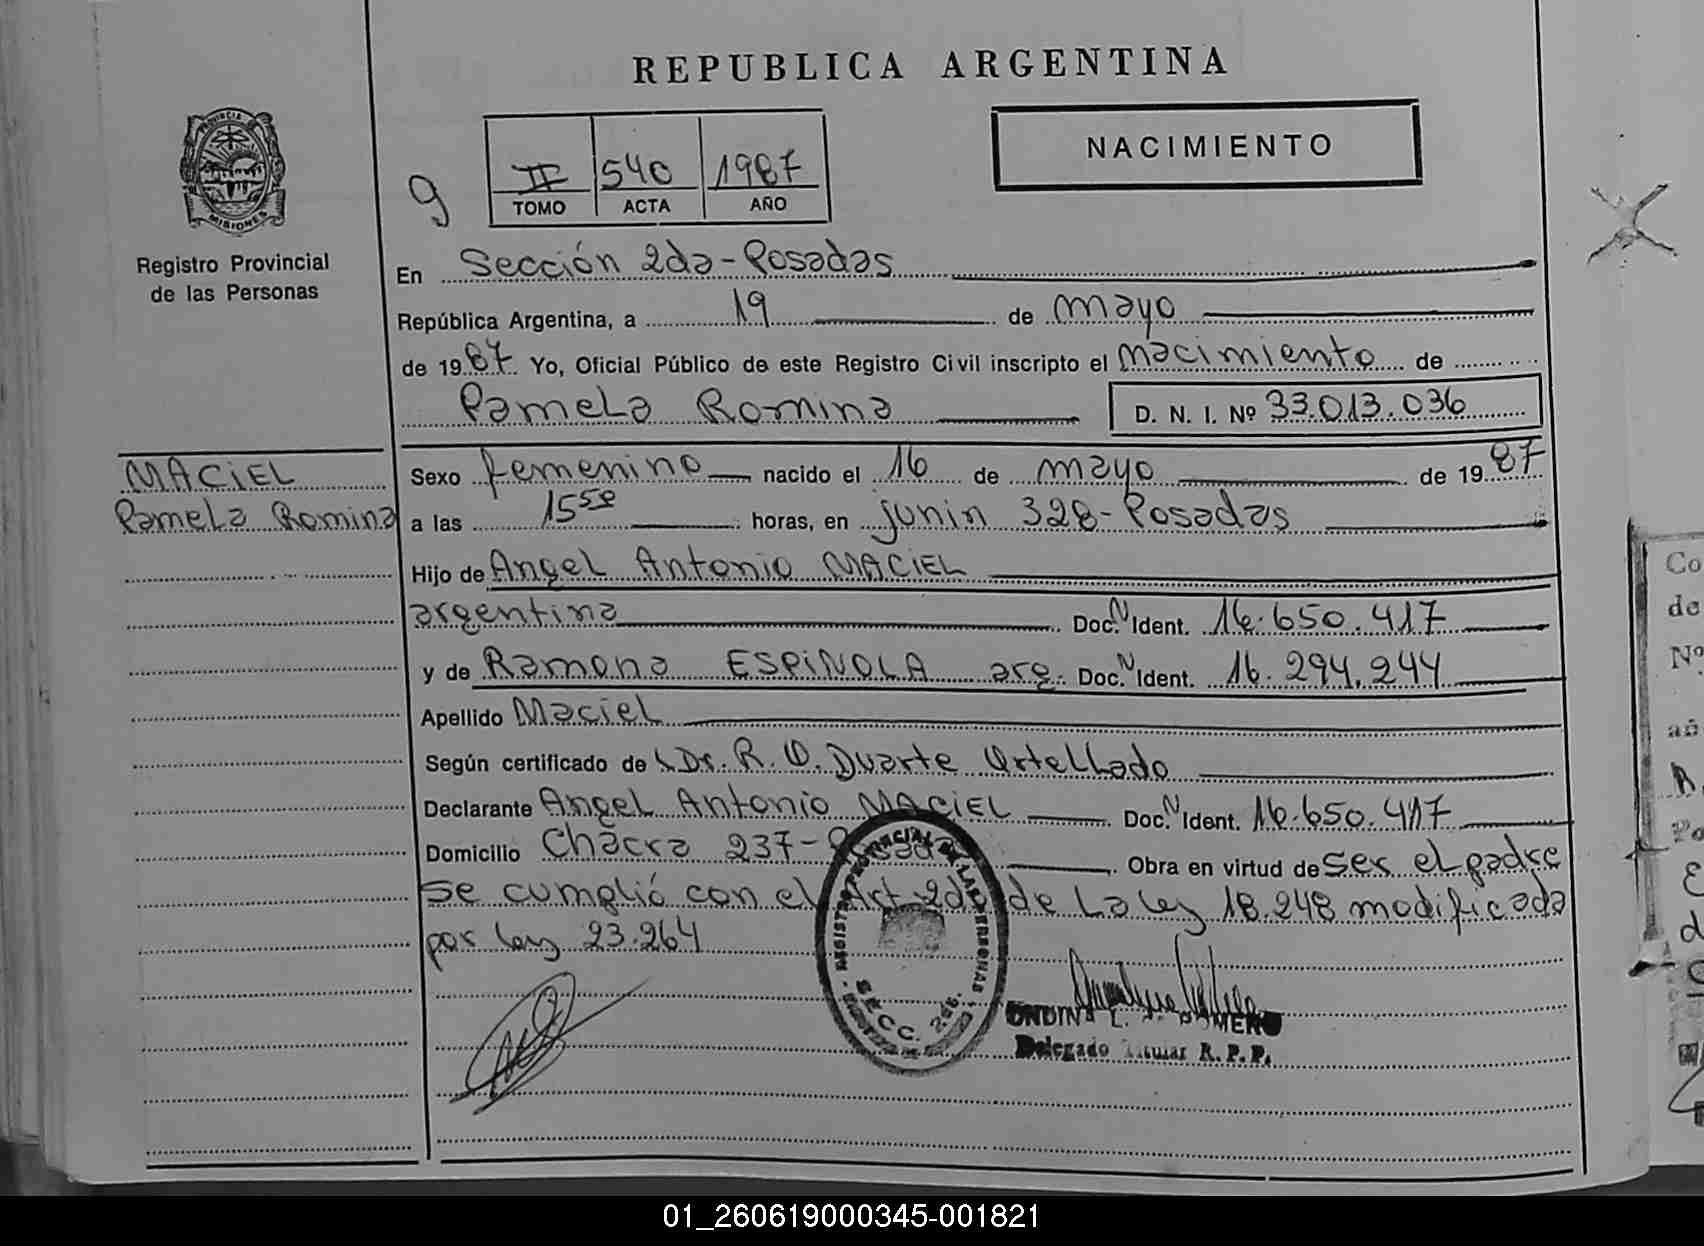 REPUBLICA ARGENTINA
PROVINCIA DE
MISIONES
Registro Provincial
de las Personas
9
II 540 1987
TOMO ACTA AÑO
NACIMIENTO
En Sección 2da-Posadas
República Argentina, a 19 de mayo
de 1987 Yo, Oficial Público de este Registro Civil inscripto el nacimiento de
Pamela Romina D. N. I. Nº 33.013.036
MACIEL
Pamela Romina
Sexo femenino nacido el 16 de mayo de 1987
a las 15 58 horas, en junin 328-Posadas
Hijo de Angel Antonio MACIEL
argentina Doc. N Ident. 16.650.417
y de Ramona ESPINOLA arg. Doc. N Ident. 16.294.244
Apellido Maciel
Según certificado de Dr. R. O. Duarte Ortellado
Declarante Angel Antonio MACIEL Doc. N Ident. 16.650.417
Domicilio Chacra 237-Posadas Obra en virtud de ser el padre
se cumplió con el Art 2do de la ley 18.248 modificada
por ley 23.264
REGISTRO PROVINCIAL DE LAS PERSONAS
SECC. 2da.
ONDINA L. ROMERO
Delegado Titular R. P. P.
Co
de
Nº
añ
01_260619000345-001821